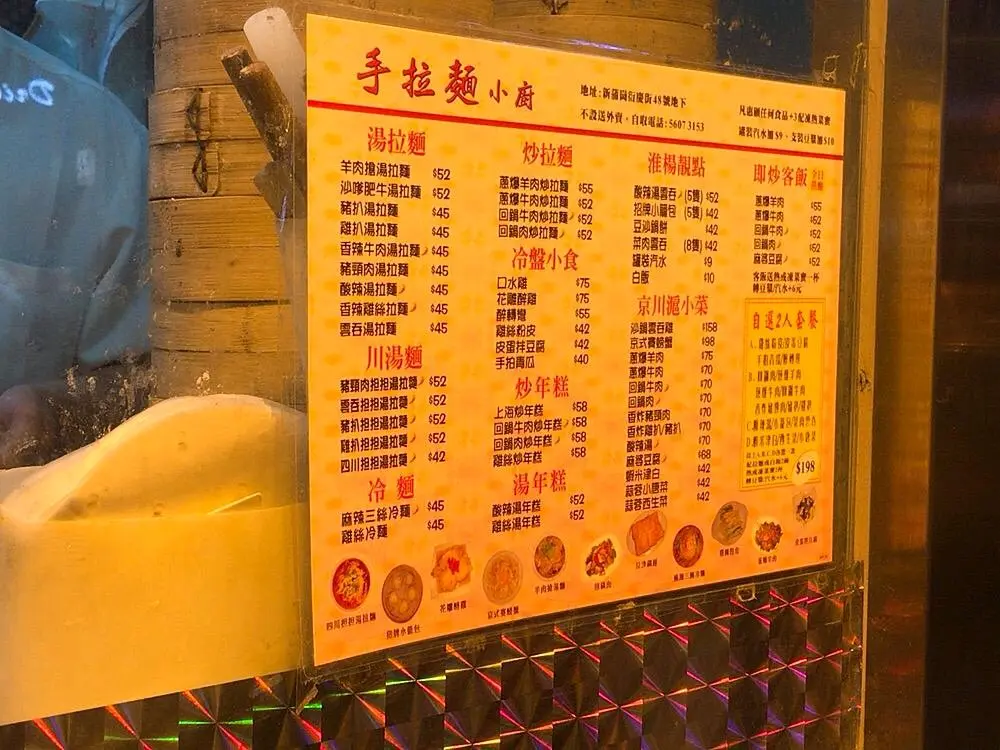 手拉麵小廚
地址:新蒲崗衍慶街48號地下
不設送外賣,自取電話:5607 3153
凡惠顧任何食品+3配凍熱菜蜜
罐裝汽水加$9、支裝豆漿加$10
湯拉麵
羊肉搶湯拉麵 $52
沙嗲肥牛湯拉麵 $52
豬扒湯拉麵 $45
雞扒湯拉麵 $45
香辣牛肉湯拉麵 $45
豬頸肉湯拉麵 $45
酸辣湯拉麵 $45
香辣雞絲拉麵 $45
雲吞湯拉麵 $45
川湯麵
豬頸肉担担湯拉麵 $52
雲吞担担湯拉麵 $52
豬扒担担湯拉麵 $52
雞扒担担湯拉麵 $52
四川担担湯拉麵 $42
冷麵
麻辣三絲冷麵 $45
雞絲冷麵 $45
炒拉麵
蔥爆羊肉炒拉麵 $55
蔥爆牛肉炒拉麵 $52
回鍋牛肉炒拉麵 $52
回鍋肉炒拉麵 $52
冷盤小食
口水雞 $75
花雕醉雞 $75
醉轉彎 $55
雞絲粉皮 $42
皮蛋拌豆腐 $42
手拍青瓜 $40
炒年糕
上海炒年糕 $58
回鍋牛肉炒年糕 $58
回鍋肉炒年糕 $58
雞絲炒年糕 $58
湯年糕
酸辣湯年糕 $52
雞絲湯年糕 $52
淮楊靚點
酸辣湯雲吞 (5隻) $52
招牌小籠包 (5隻) $42
豆沙鍋餅 $42
菜肉雲吞 (8隻) $42
罐裝汽水 $9
白飯 $10
京川滬小菜
沙鍋雲吞雞 $158
京式賽螃蟹 $98
蔥爆羊肉 $75
蔥爆牛肉 $70
回鍋牛肉 $70
回鍋肉 $70
香炸豬頸肉 $70
香炸雞扒/豬扒 $70
酸辣湯 $70
麻婆豆腐 $68
蝦米津白 $42
蒜蓉小唐菜 $42
蒜蓉西生菜 $42
即炒客飯
蔥爆羊肉 $55
蔥爆牛肉 $52
回鍋牛肉 $52
回鍋肉 $52
麻婆豆腐 $52
客飯送熱或凍菜蜜一杯
轉豆漿/汽水+6元
自選2人套餐
$198
四川担担湯拉麵
招牌小籠包
花雕醉雞
京式賽螃蟹
羊肉搶湯麵
回鍋肉
豆沙鍋餅
麻辣三絲冷麵